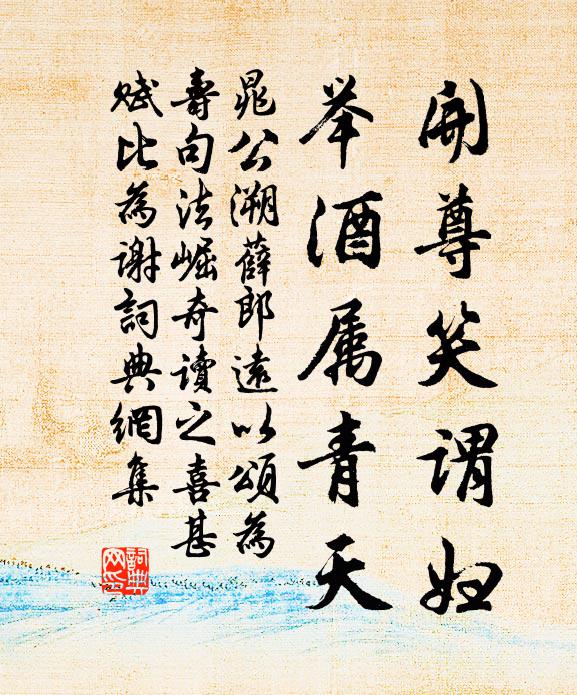 開尊笑谓妇
举酒属青天
晁公溯薛郎遠以頌為
壽句法崛奇讀之喜甚
赋比為谢詞典網集
詞典网印